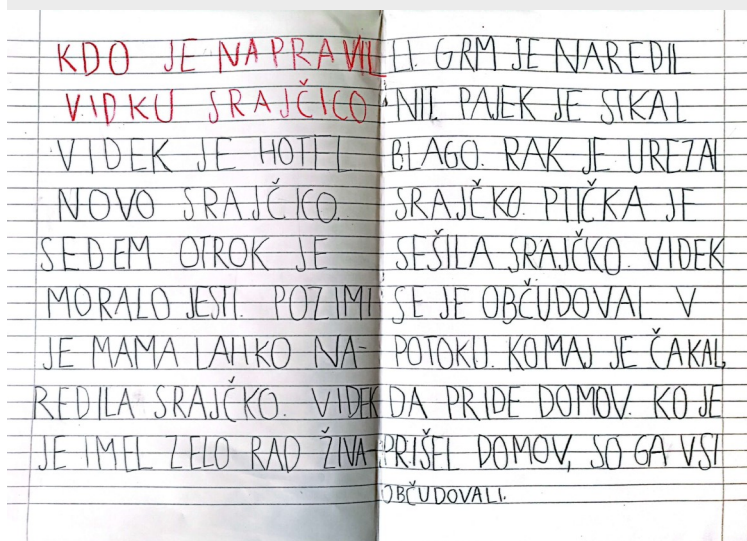 KDO JE NAPRAVIL
VIDKU SRAJČICO
VIDEK JE HOTEL
NOVO SRAJČICO.
SEDEM OTROK JE
MORALO JESTI. POZIMI
JE MAMA LAHKO NA-
REDILA SRAJČKO. VIDEK
JE IMEL ZELO RAD ŽIVA-
LI. GRM JE NAREDIL
NIT. PAJEK JE STKAL
BLAGO. RAK JE UREZAL
SRAJČKO. PTIČKA JE
SEŠILA SRAJČKO. VIDEK
SE JE OBČUDOVAL V
POTOKU. KOMAJ JE ČAKAL,
DA PRIDE DOMOV. KO JE
PRIŠEL DOMOV, SO GA VSI
OBČUDOVALI.